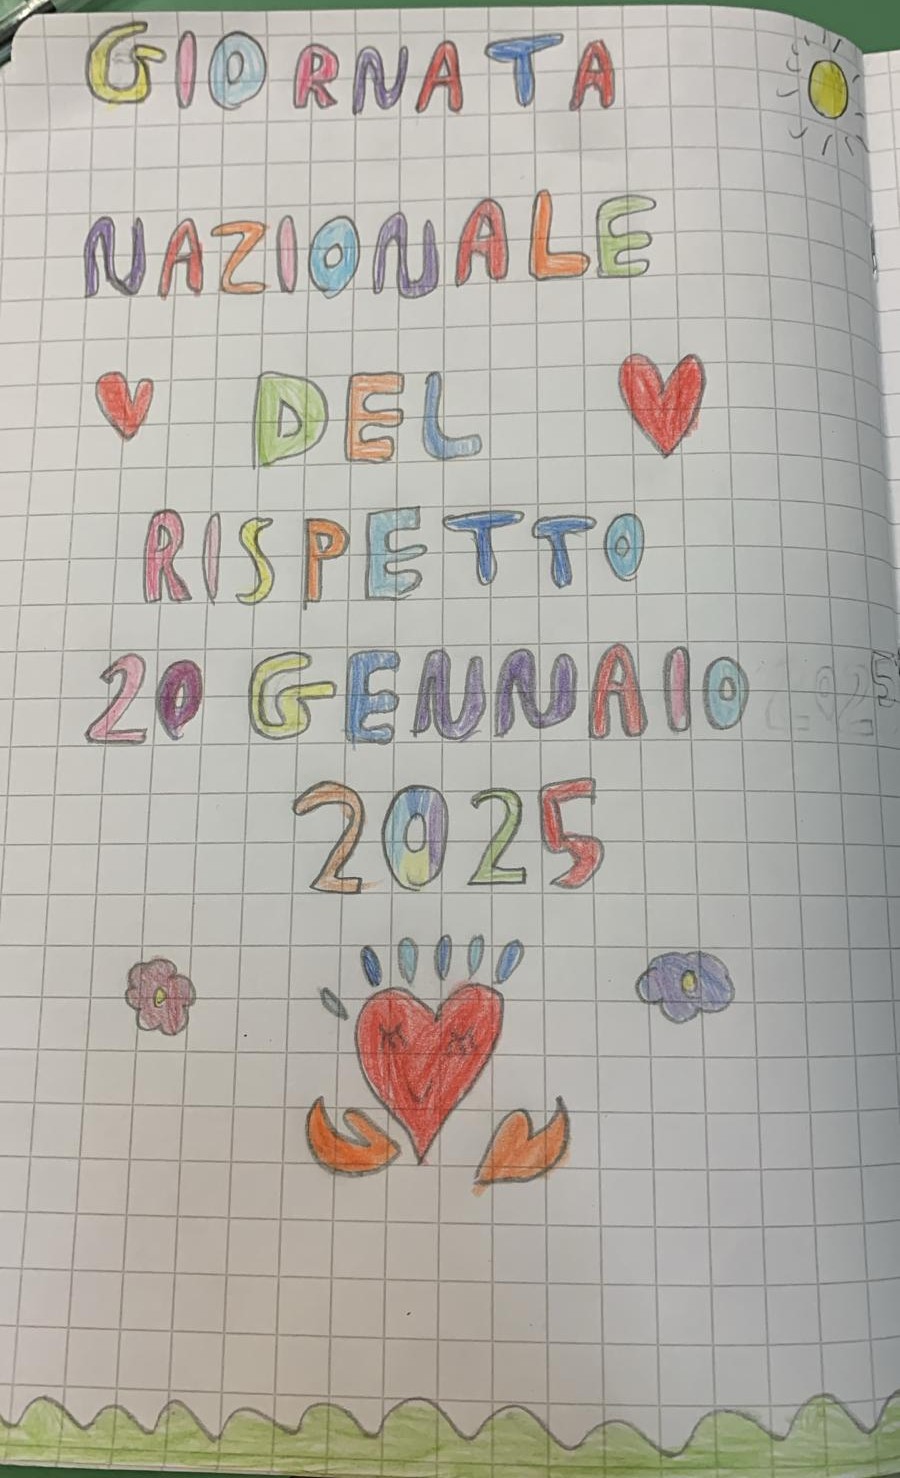 GIORNATA
NAZIONALE
DEL
RISPETTO
20 GENNAIO 2025
2025